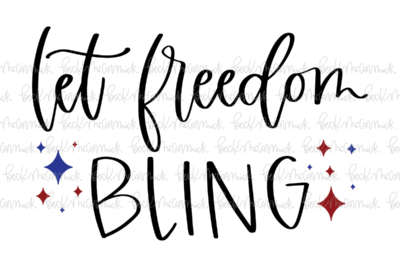 let freedom
BLING